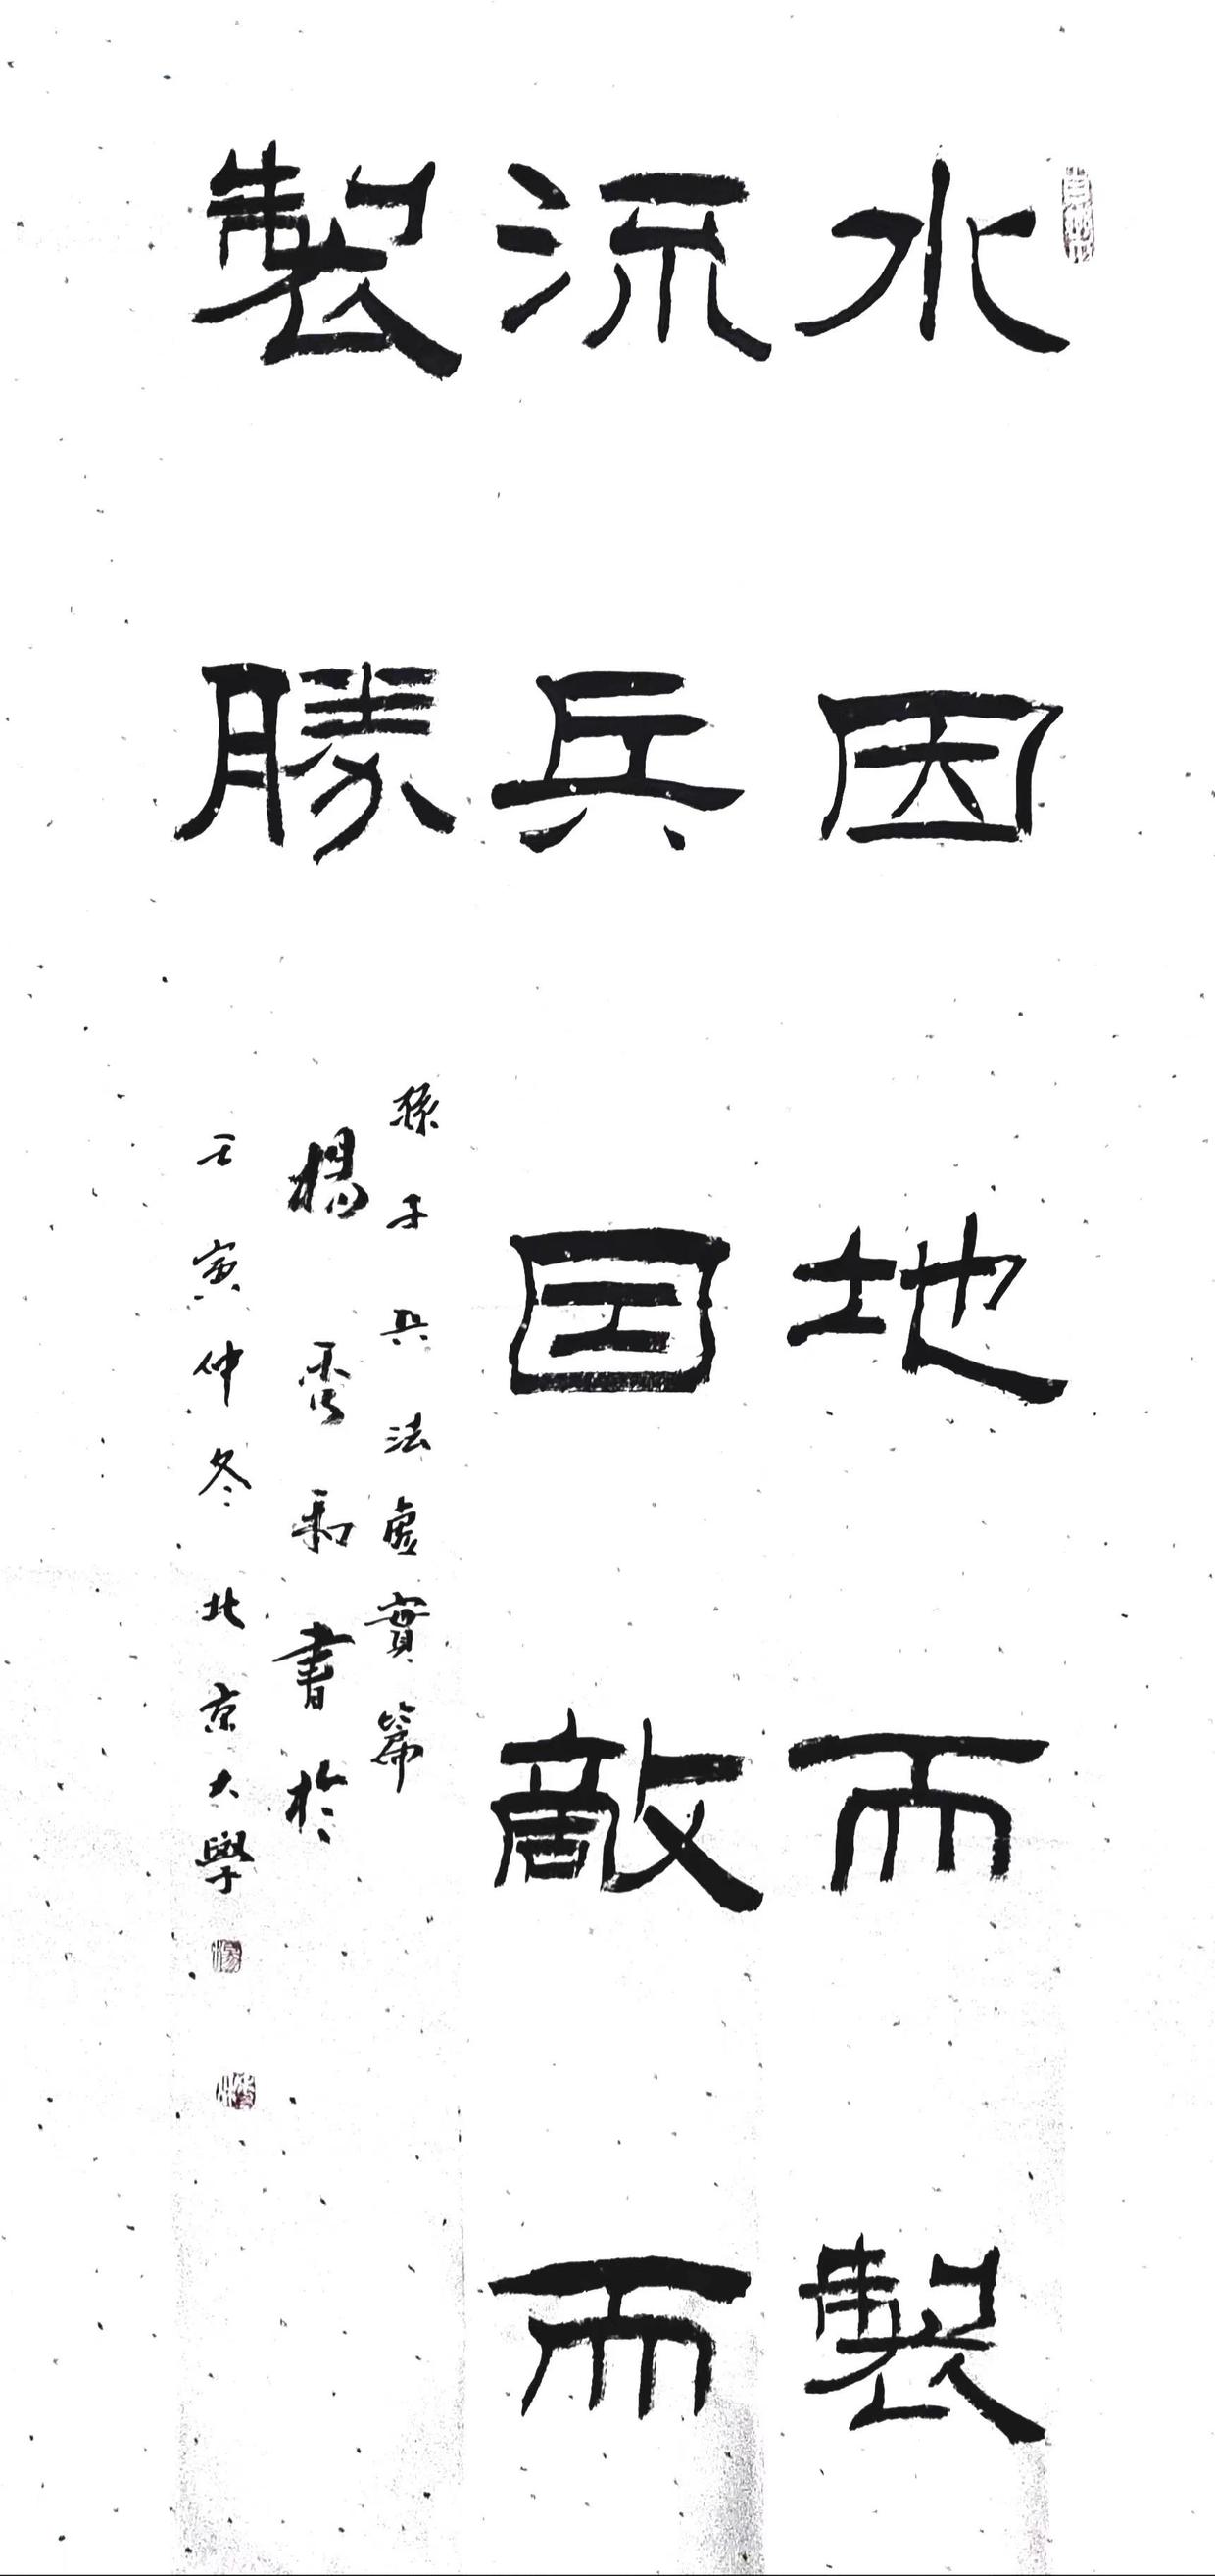 水因地而製
流兵因敵而
製勝
孫子兵法虛實篇
楊書於
壬寅仲冬北京大學
楊